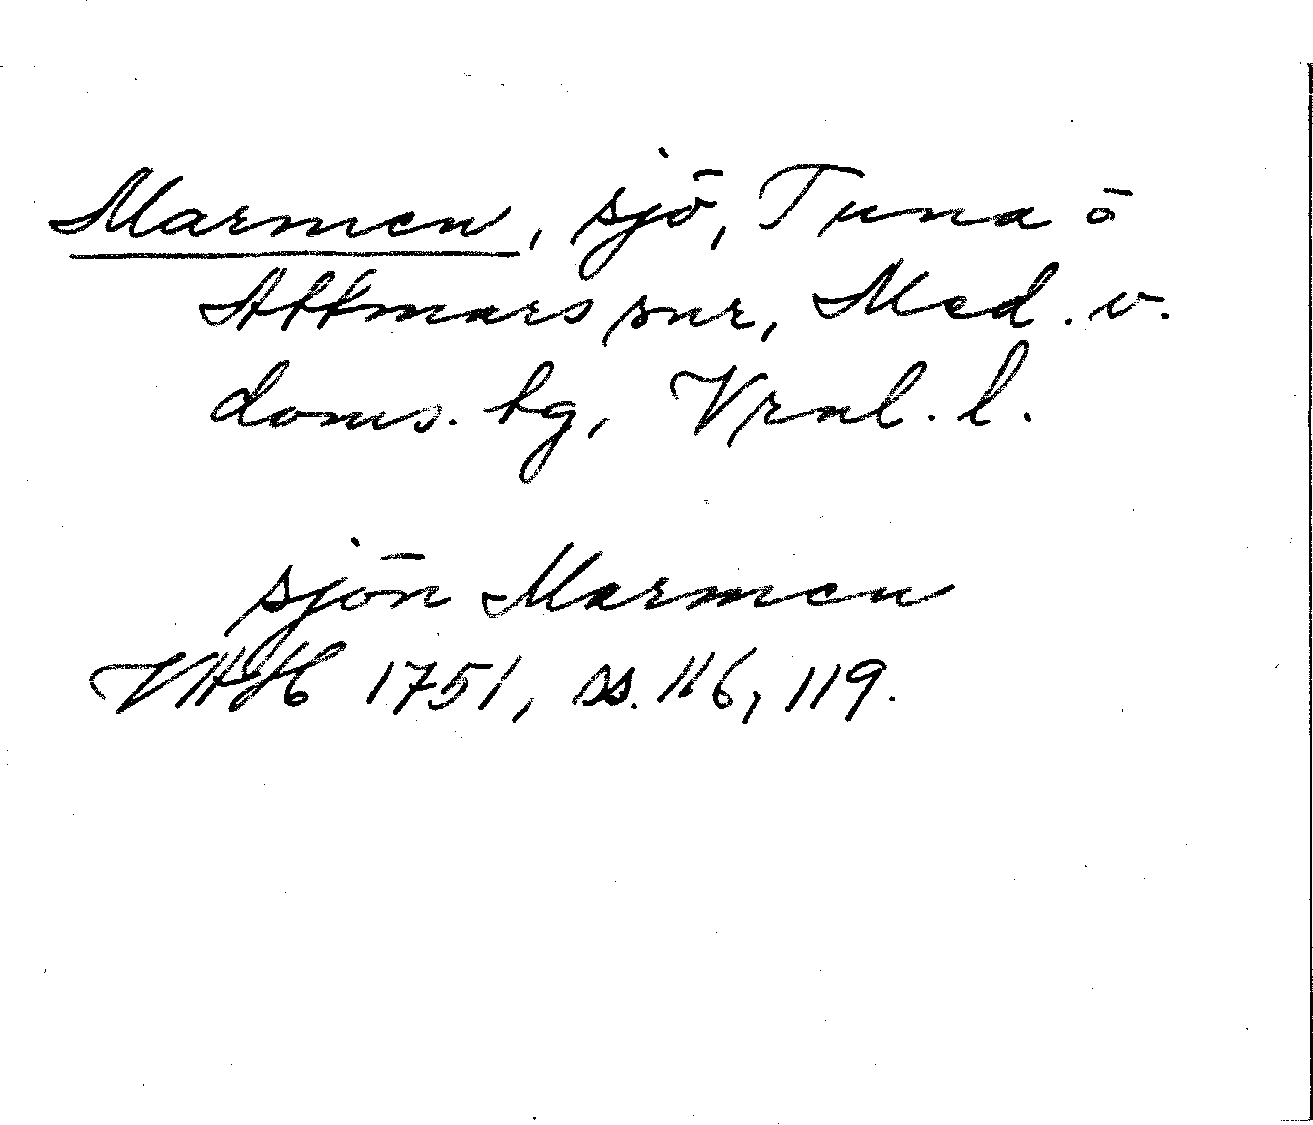 Marmen, sjö, Tuna ō
Attmars snr, Med. v.
doms. tg, Vrnl. l.
sjön Marmen
VAH 1751, ss. 116, 119.